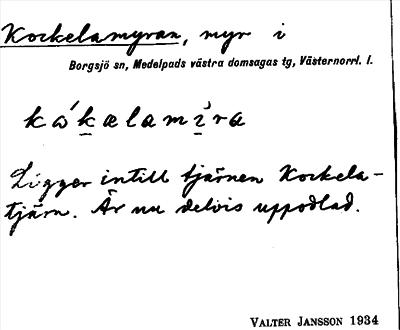 Kockelamyran, myr i
Borgsjö sn, Medelpads västra domsagas tg, Västernorrl. l.
kώkælamìra
Ligger intill tjärnen Kockela-
tjärn. Är nu delvis uppodlad.
VALTER JANSSON 1934